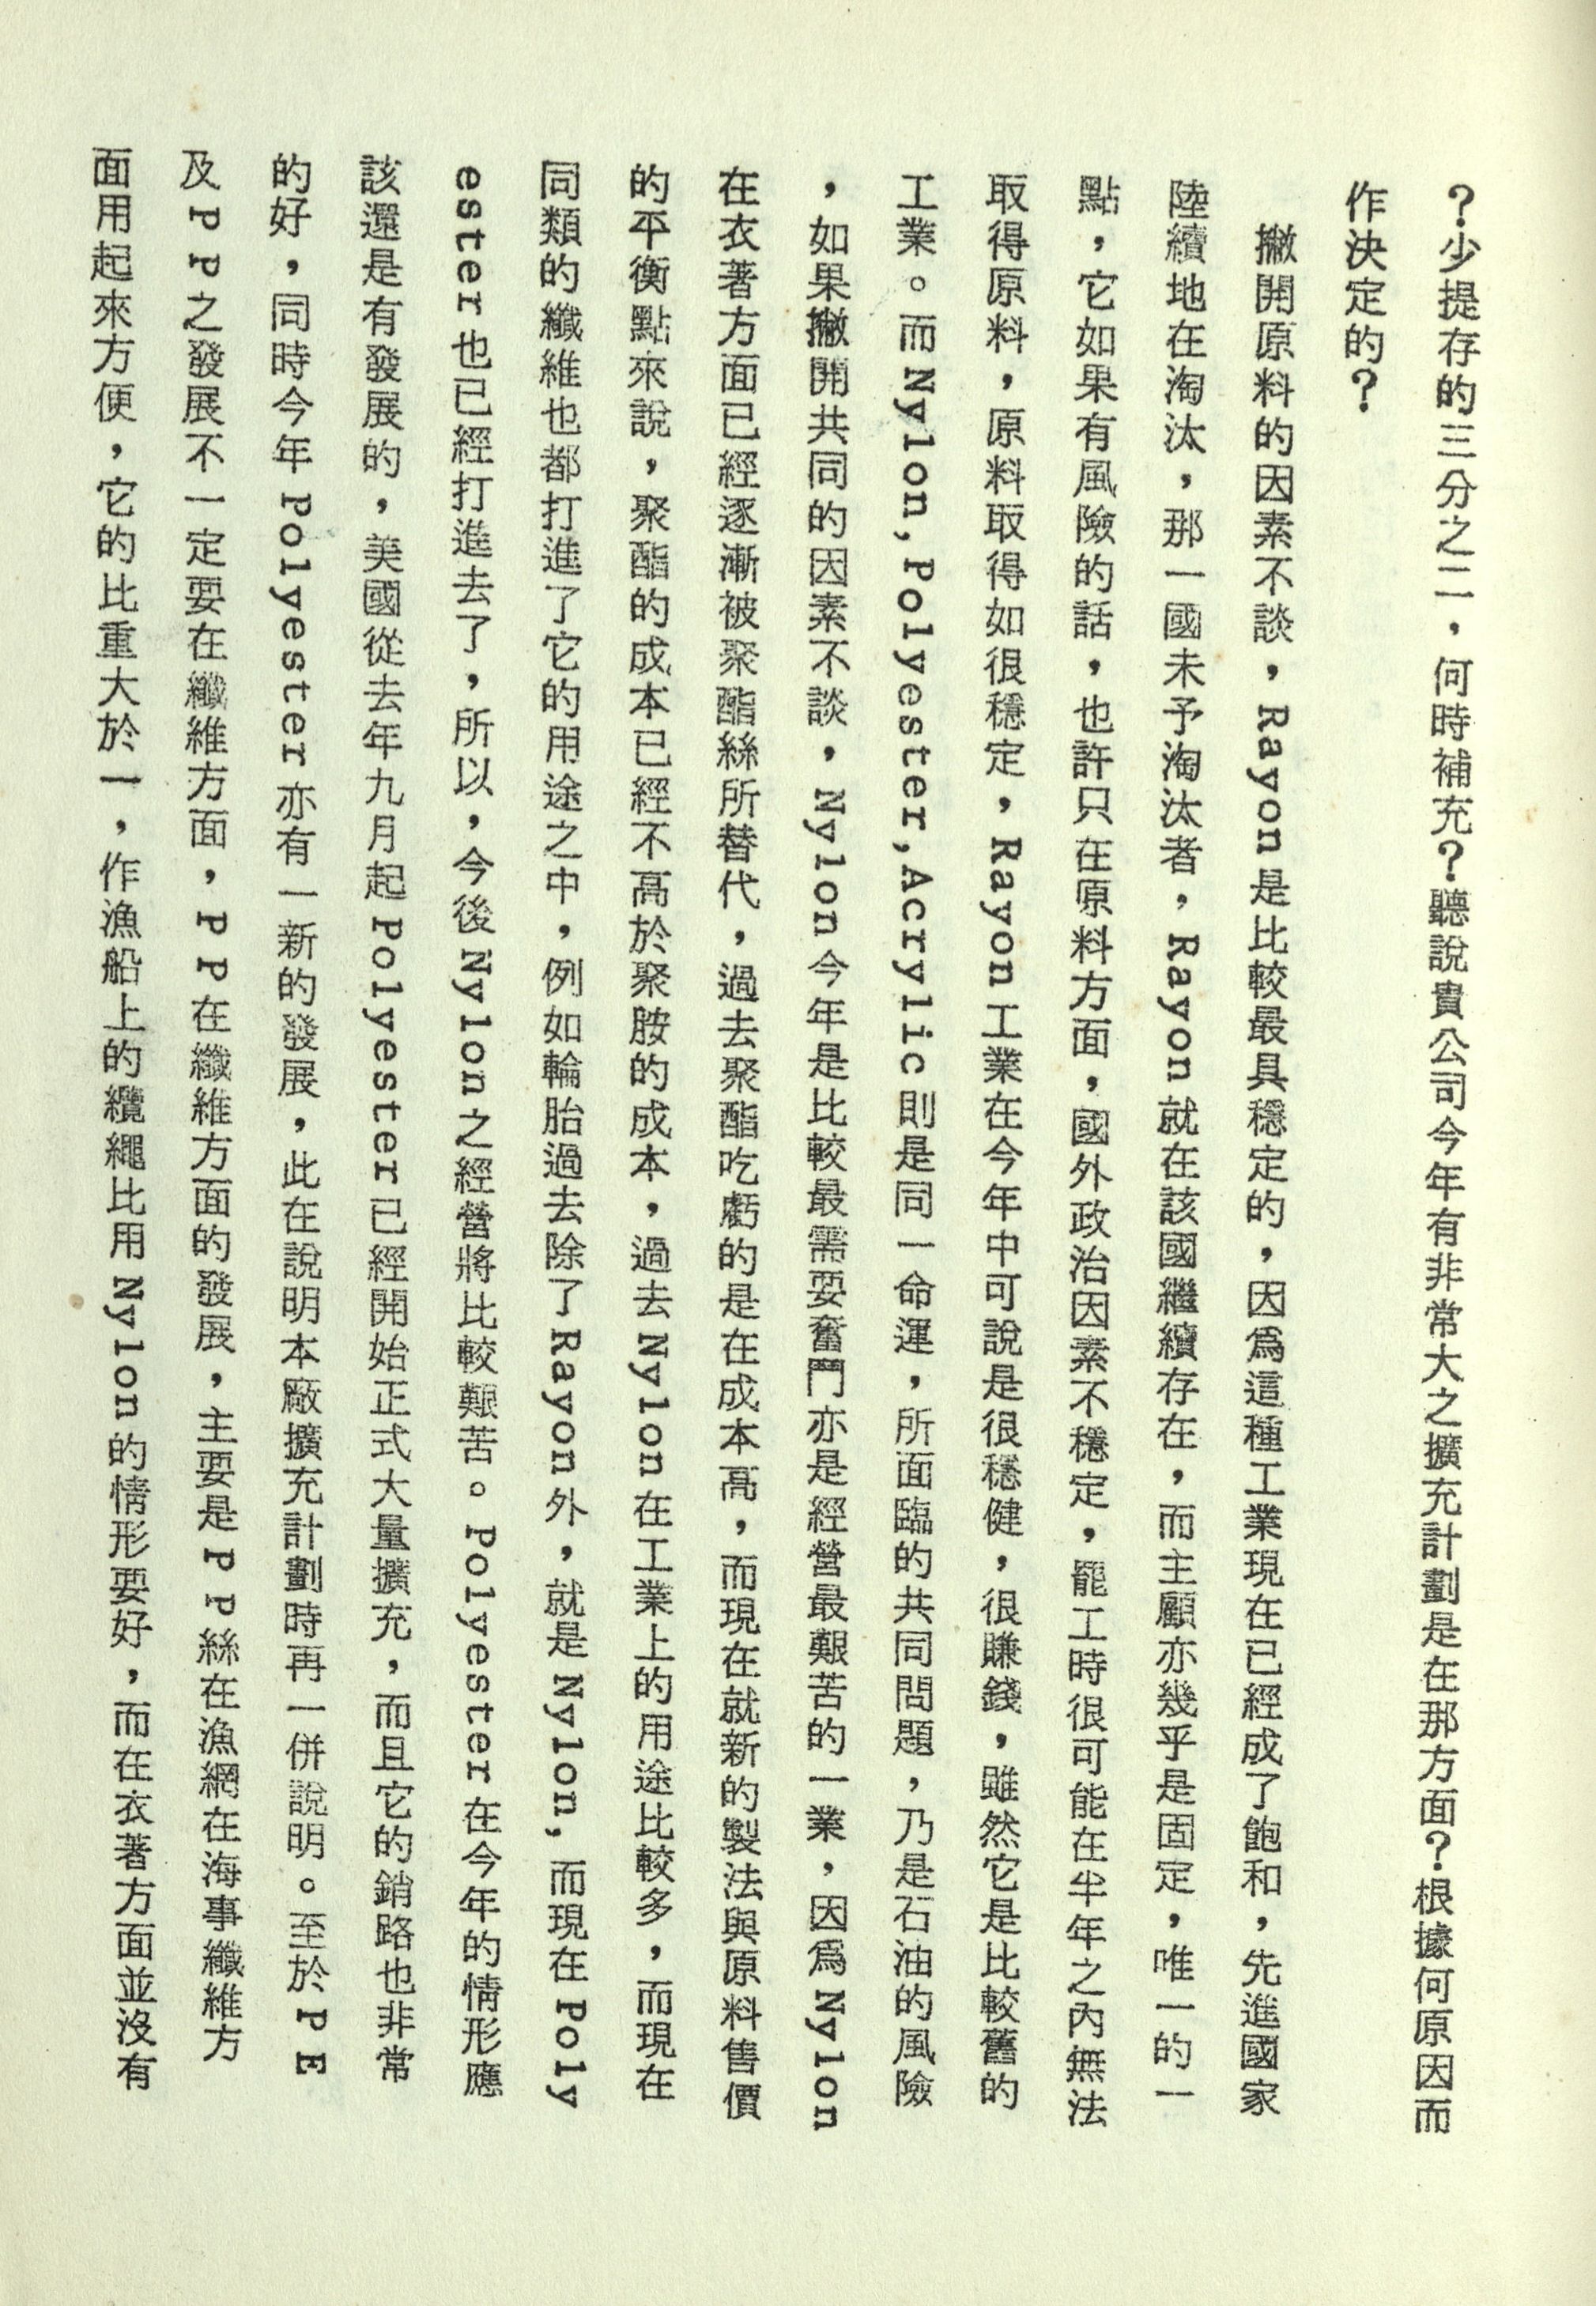 ？少提存的三分之二，何時補充？聽說貴公司今年有非常大之擴充計劃是在那方面？根據何原因而
作決定的？
撇開原料的因素不談，Rayon是比較最具穩定的，因爲這種工業現在已經成了飽和，先進國家
陸續地在淘汰，那一國未予淘汰者，Rayon就在該國繼續存在，而主顧亦幾乎是固定，唯一的一
點，它如果有風險的話，也許只在原料方面，國外政治因素不穩定，罷工時很可能在半年之內無法
取得原料，原料取得如很穩定，Rayon工業在今年中可說是很穩健，很賺錢，雖然它是比較舊的
工業。而Nylon,Polyester,Acrylic則是同一命運，所面臨的共同問題，乃是石油的風險
，如果撇開共同的因素不談，Nylon今年是比較最需要奮鬥亦是經營最艱苦的一業，因爲Nylon
在衣著方面已經逐漸被聚酯絲所替代，過去聚酯吃虧的是在成本高，而現在就新的製法與原料售價
的平衡點來說，聚酯的成本已經不高於聚胺的成本，過去Nylon在工業上的用途比較多，而現在
同類的纖維也都打進了它的用途之中，例如輪胎過去除了Rayon外，就是Nylon,而現在Poly
ester也已經打進去了，所以，今後Nylon之經營將比較艱苦。Polyester在今年的情形應
該還是有發展的，美國從去年九月起Polyester已經開始正式大量擴充，而且它的銷路也非常
的好，同時今年Polyester亦有一新的發展，此在說明本廠擴充計劃時再一併說明。至於PE
及PP之發展不一定要在纖維方面，PP在纖維方面的發展，主要是PP絲在漁網在海事纖維方
面用起來方便，它的比重大於一，作漁船上的纜繩比用Nylon的情形要好，而在衣著方面並沒有